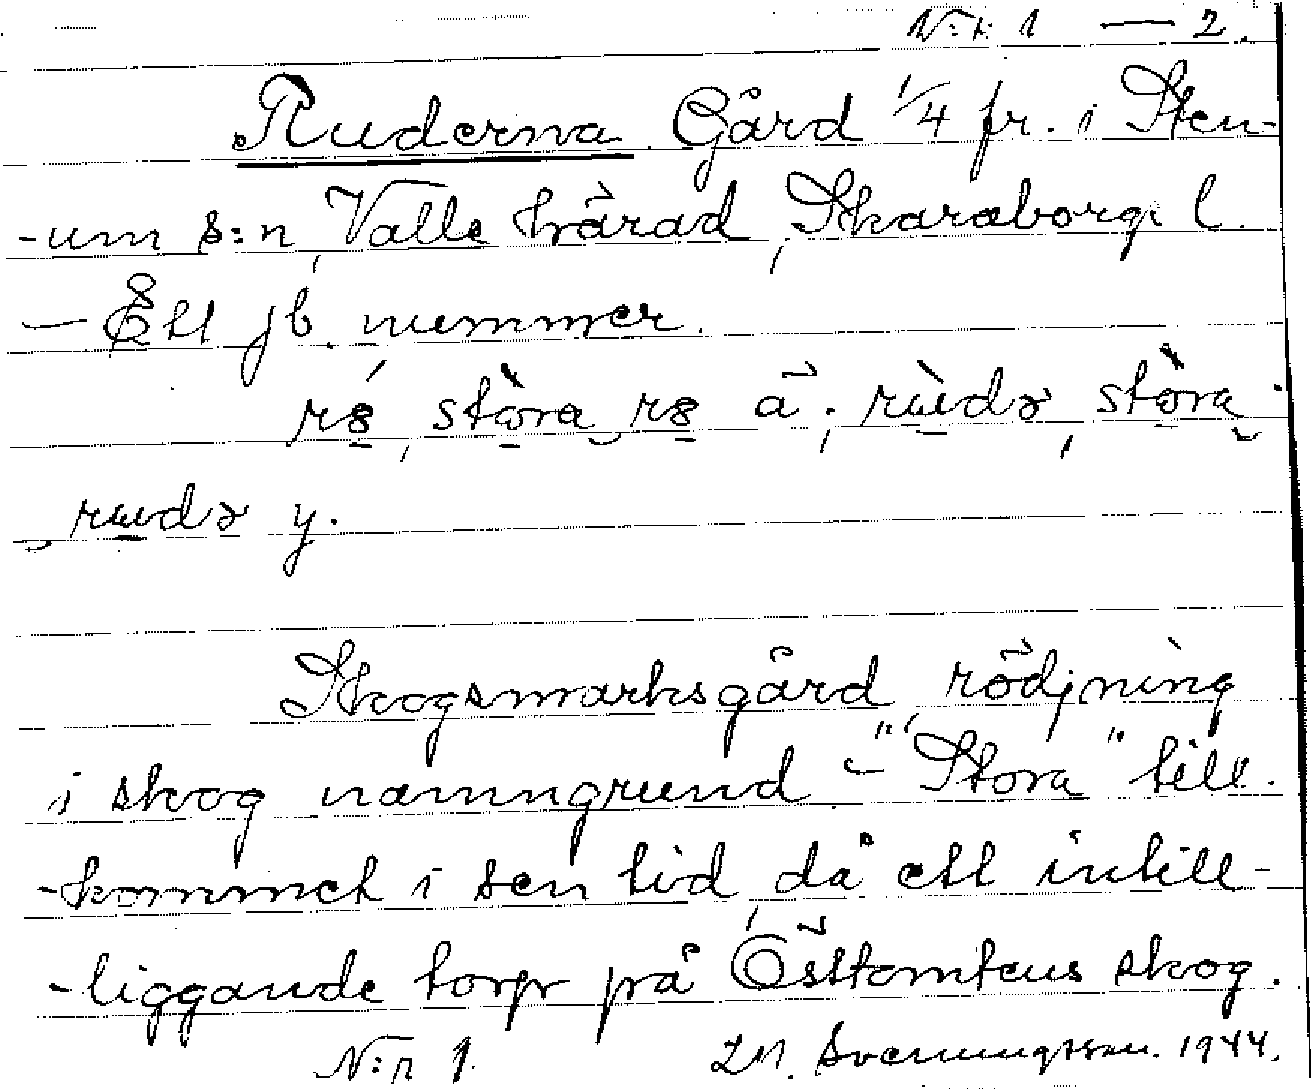 N:r 1 — 2.
Ruderna. Gård 1/4 fr. i Sten-
-um s:n, Valle härad, Skaraborgs l.
— Ett jb. nummer.
stora ä.; stora
y.
Skogsmarksgård rödjning
i skog namngrund. — "Stora" till-
-kommet i sen tid, då ett intill-
-liggande torp på Östtomtens skog.
N:r 1. Svenningsson. 1944.